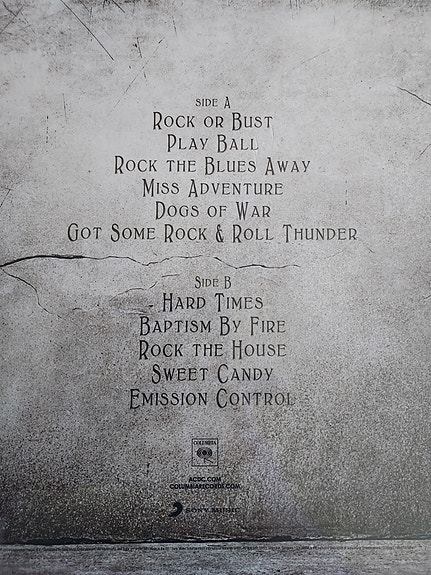 SIDE A
ROCK OR BUST
PLAY BALL
ROCK THE BLUES AWAY
MISS ADVENTURE
DOGS OF WAR
GOT SOME ROCK & ROLL THUNDER
SIDE B
HARD TIMES
BAPTISM BY FIRE
ROCK THE HOUSE
SWEET CANDY
EMISSION CONTROL
COLUMBIA
ACDC.COM
COLUMBIARECORDS.COM
SONY MUSIC